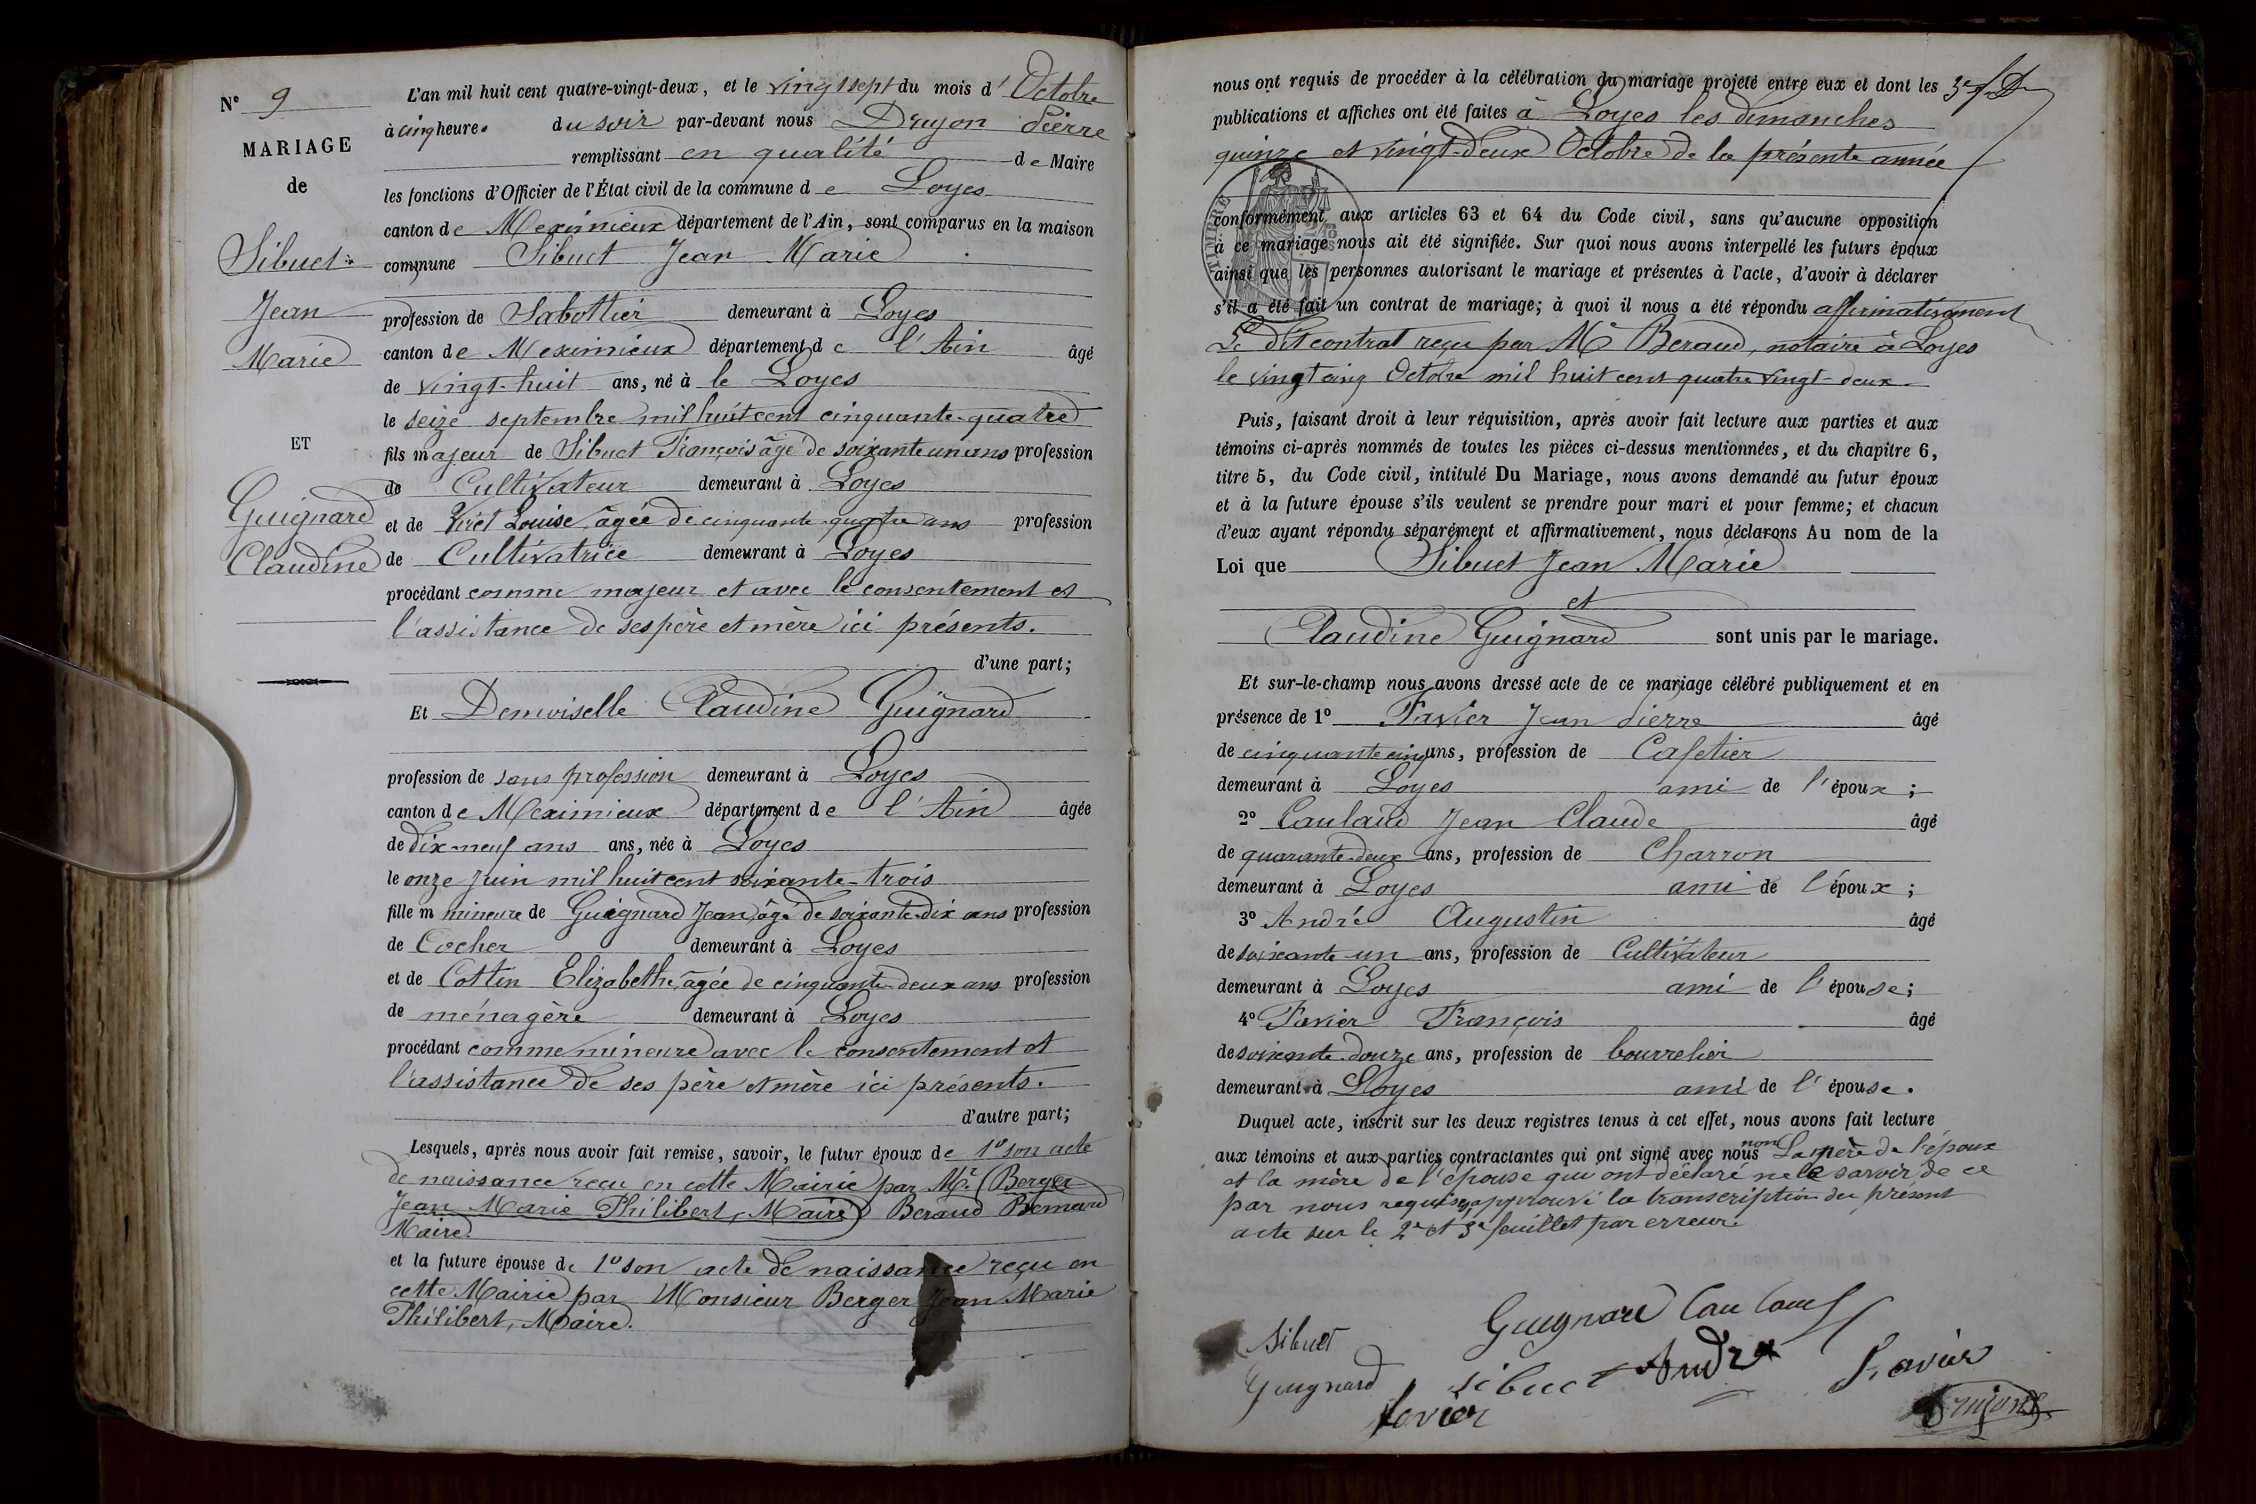 N° 9
MARIAGE
de
Sibuet
Jean
Marie
ET
Guignard
Claudine
L'an mil huit cent quatre-vingt-deux, et le vingt sept du mois d' Octobre
à cinq heures du soir par-devant nous Druyon Pierre
remplissant en qualité de Maire
les fonctions d'Officier de l'État civil de la commune de Loyes
canton de Meximieux département de l'Ain, sont comparus en la maison
commune Sibuet Jean Marie
profession de Sabottier demeurant à Loyes
canton de Meximieux département de l'Ain âgé
de vingt-huit ans, né à le Loyes
le seize septembre mil huit cent cinquante-quatre
fils majeur de Sibuet François âgé de soixante un ans profession
de Cultivateur demeurant à Loyes
et de Viret Louise, âgée de cinquante-quatre ans profession
de Cultivatrice demeurant à Loyes
procédant comme majeur et avec le consentement et
l'assistance de ses père et mère ici présents.
d'une part;
Et Demoiselle Claudine Guignard
profession de sans profession demeurant à Loyes
canton de Meximieux département de l'Ain âgée
de dix-neuf ans ans, née à Loyes
le onze Juin mil huit cent soixante-trois
fille m mineure de Guignard Jean, âgé de soixante-dix ans profession
de Cocher demeurant à Loyes
et de Cottin Elizabethe, âgée de cinquante-deux ans profession
de ménagère demeurant à Loyes
procédant comme mineure avec le consentement et
l'assistance de ses père et mère ici présents.
d'autre part;
Lesquels, après nous avoir fait remise, savoir, le futur époux de 1° son acte
de naissance reçu en cette Mairie par Mr. (Berger
Jean Marie Philibert, Maire) Beraud Bernard
Maire.
et la future épouse de 1° son acte de naissance reçu en
cette Mairie par Monsieur Berger Jean Marie
Philibert, Maire.
nous ont requis de procéder à la célébration du mariage projeté entre eux et dont les
publications et affiches ont été faites à Loyes les dimanches
quinze et vingt-deux Octobre de la présente année
TIMBRE
conformément aux articles 63 et 64 du Code civil, sans qu'aucune opposition
à ce mariage nous ait été signifiée. Sur quoi nous avons interpellé les futurs époux
ainsi que les personnes autorisant le mariage et présentes à l'acte, d'avoir à déclarer
s'il a été fait un contrat de mariage; à quoi il nous a été répondu affirmativement
Le dit contrat reçu par Me Beraud, notaire à Loyes
le vingt cinq Octobre mil huit cent quatre vingt-deux
Puis, faisant droit à leur réquisition, après avoir fait lecture aux parties et aux
témoins ci-après nommés de toutes les pièces ci-dessus mentionnées, et du chapitre 6,
titre 5, du Code civil, intitulé Du Mariage, nous avons demandé au futur époux
et à la future épouse s'ils veulent se prendre pour mari et pour femme; et chacun
d'eux ayant répondu séparément et affirmativement, nous déclarons Au nom de la
Loi que Sibuet Jean Marie
et
Claudine Guignard sont unis par le mariage.
Et sur-le-champ nous avons dressé acte de ce mariage célébré publiquement et en
présence de 1° Favier Jean Pierre âgé
de cinquante cinq ans, profession de Cafetier
demeurant à Loyes ami de l'époux;
2° Caulaud Jean Claude âgé
de quarante-deux ans, profession de Charron
demeurant à Loyes ami de l'époux;
3° André Augustin âgé
de soixante-un ans, profession de Cultivateur
demeurant à Loyes ami de l'épouse;
4° Favier François âgé
de soixante-douze ans, profession de bourrelier
demeurant à Loyes ami de l'épouse.
Duquel acte, inscrit sur les deux registres tenus à cet effet, nous avons fait lecture
aux témoins et aux parties contractantes qui ont signé avec nous non La mère de l'époux
et la mère de l'épouse qui ont déclaré ne le savoir de ce
par nous requises, approuvé la transcription du présent
acte sur le 2e et 3e feuillet par erreur.
Guignard Caulaud
Sibuet
Guignard Sibuet André Favier
Favier
Druyon